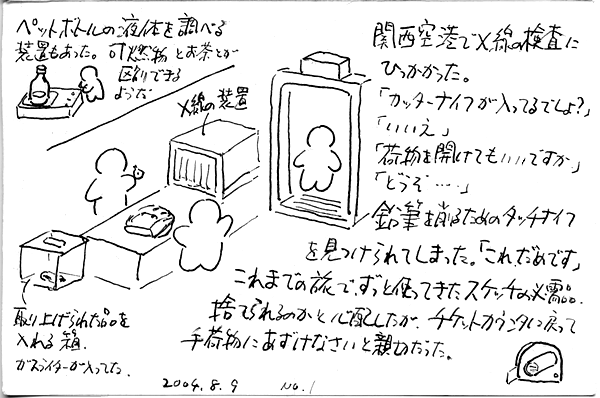 ペットボトルの液体を調べる
装置もあった。可燃物とお茶とか
区別できる
ような
X線の装置
関西空港でX線の検査に
ひっかかった。
「カッターナイフが入ってるでしょ?」
「いいえ」
「荷物を開けてもいいですか」
「どうぞ……」
鉛筆を削るためのタッチナイフ
を見つけられてしまった。「これだめです」
これまでの旅でずっと使ってきたスケッチの必需品。
捨てられるのかと心配したが、チケットカウンタに戻って
手荷物にあずけなさいと親切だった。
取り上げられた品を
入れる箱.
ガスライターが入ってた.
2004.8.9 No.1